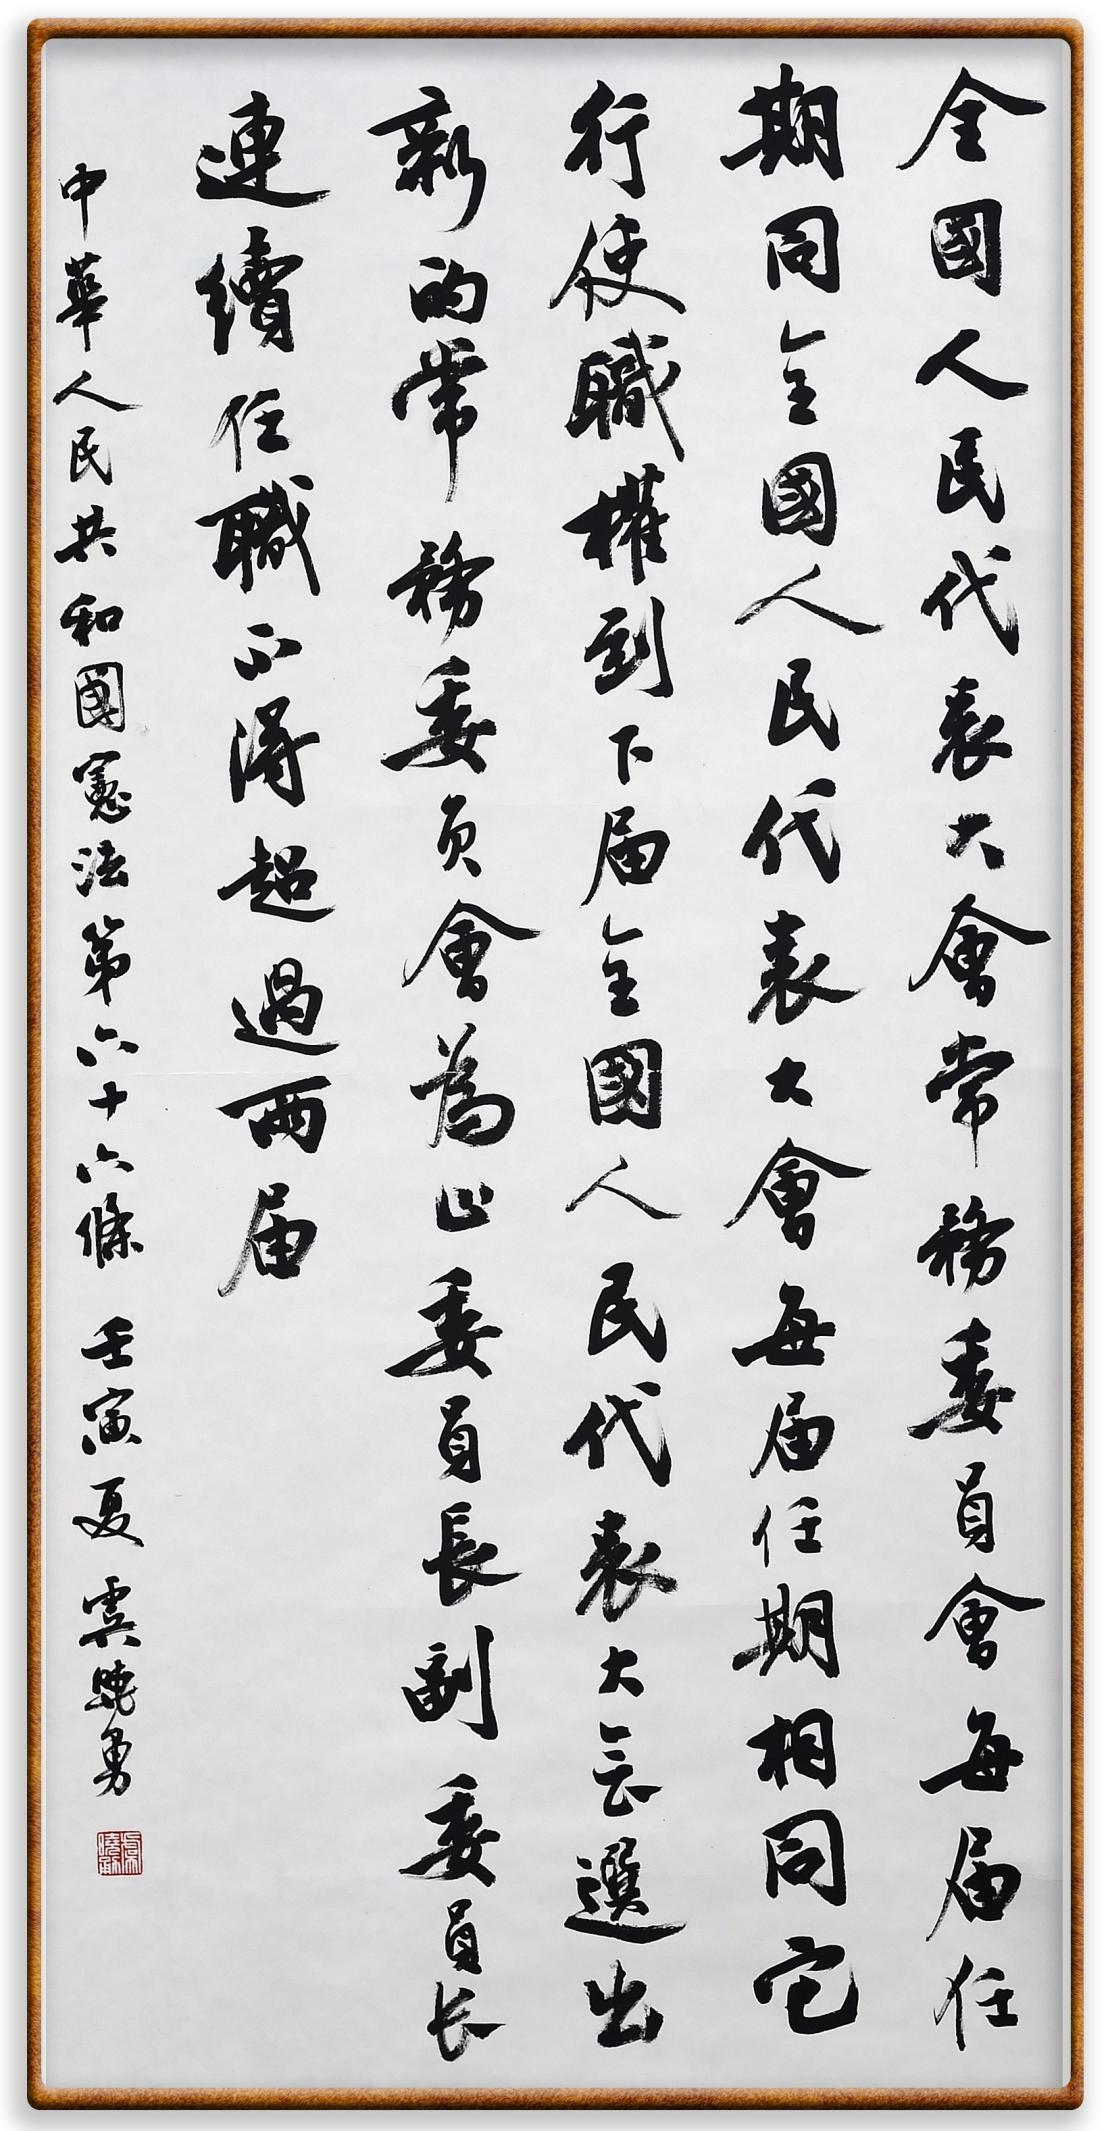 全國人民代表大會常務委員會每届任
期同全國人民代表大會每届任期相同它
行使職權到下届全國人民代表大会選出
新的常務委员會為止委員長副委員长
連續任職不得超過两届
中華人民共和國憲法第六十六條 壬寅夏 虞曉勇